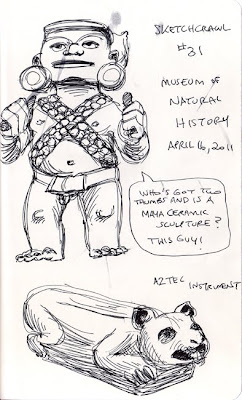 SKETCHCRAWL
#31
MUSEUM OF
NATURAL
HISTORY
APRIL 16, 2011
WHO'S GOT TWO
THUMBS AND IS A
MAYA CERAMIC
SCULPTURE?
THIS GUY!
AZTEC INSTRUMENT